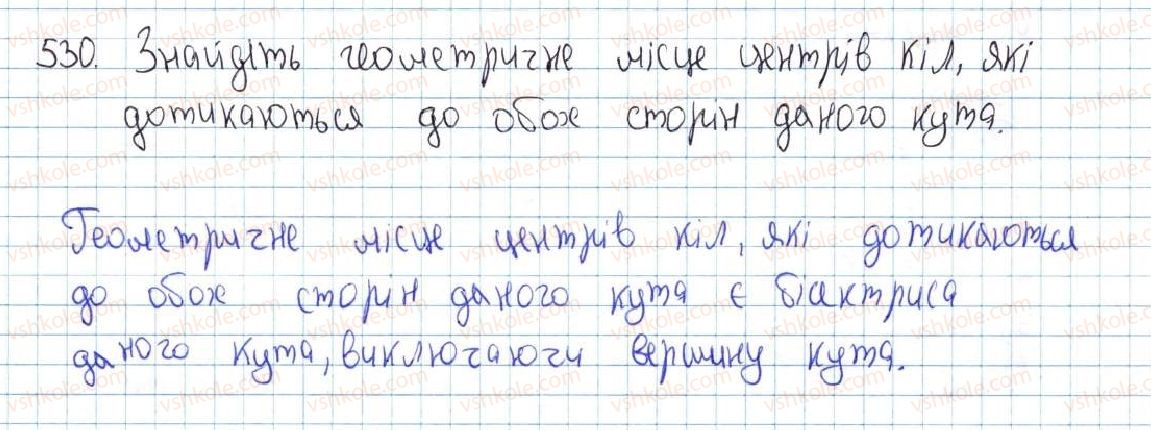 530. Знайдіть геометричне місце центрів кіл, які
дотикаються до обох сторін даного кута.
Геометричне місце центрів кіл, які дотикаються
до обох сторін даного кута є бісектриса
даного кута, виключаючи вершину кута.